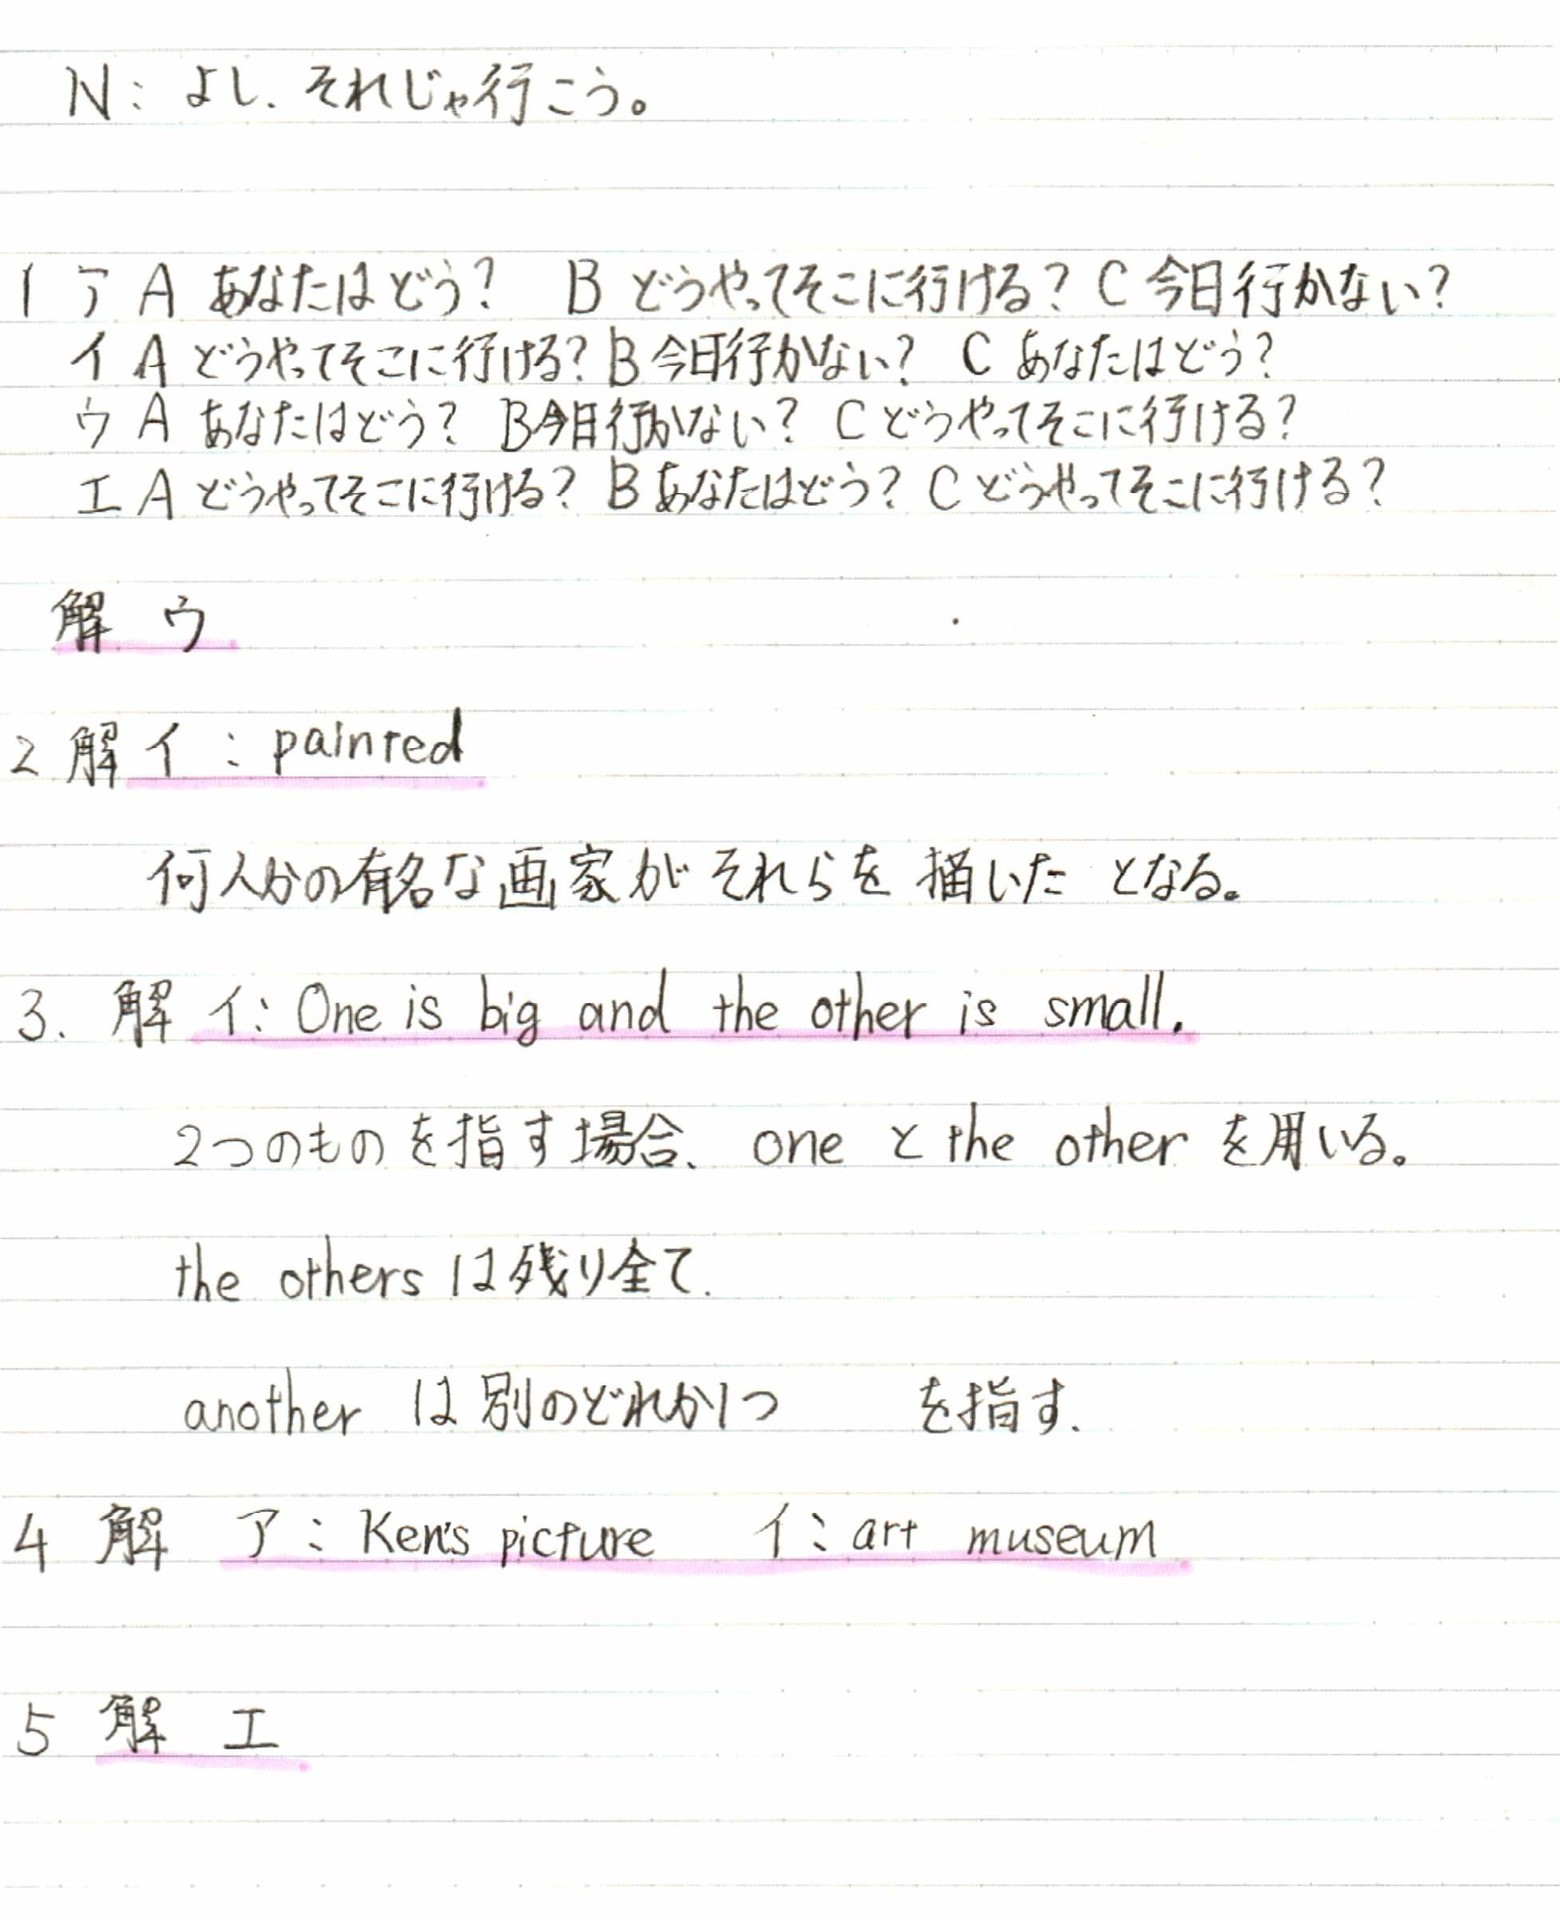 N: よし、それじゃ行こう。
1 ア A あなたはどう? B どうやってそこに行ける? C 今日行かない?
イ A どうやってそこに行ける? B 今日行かない? C あなたはどう?
ウ A あなたはどう? B 今日行かない? C どうやってそこに行ける?
エ A どうやってそこに行ける? B あなたはどう? C どうやってそこに行ける?
解 ウ
2 解 イ: painted
何人かの有名な画家がそれらを描いた となる。
3. 解 イ: One is big and the other is small.
2つのものを指す場合、one と the other を用いる。
the others は残り全て.
another は別のどれか1つ を指す.
4 解 ア: Ken's picture イ: art museum
5 解 エ